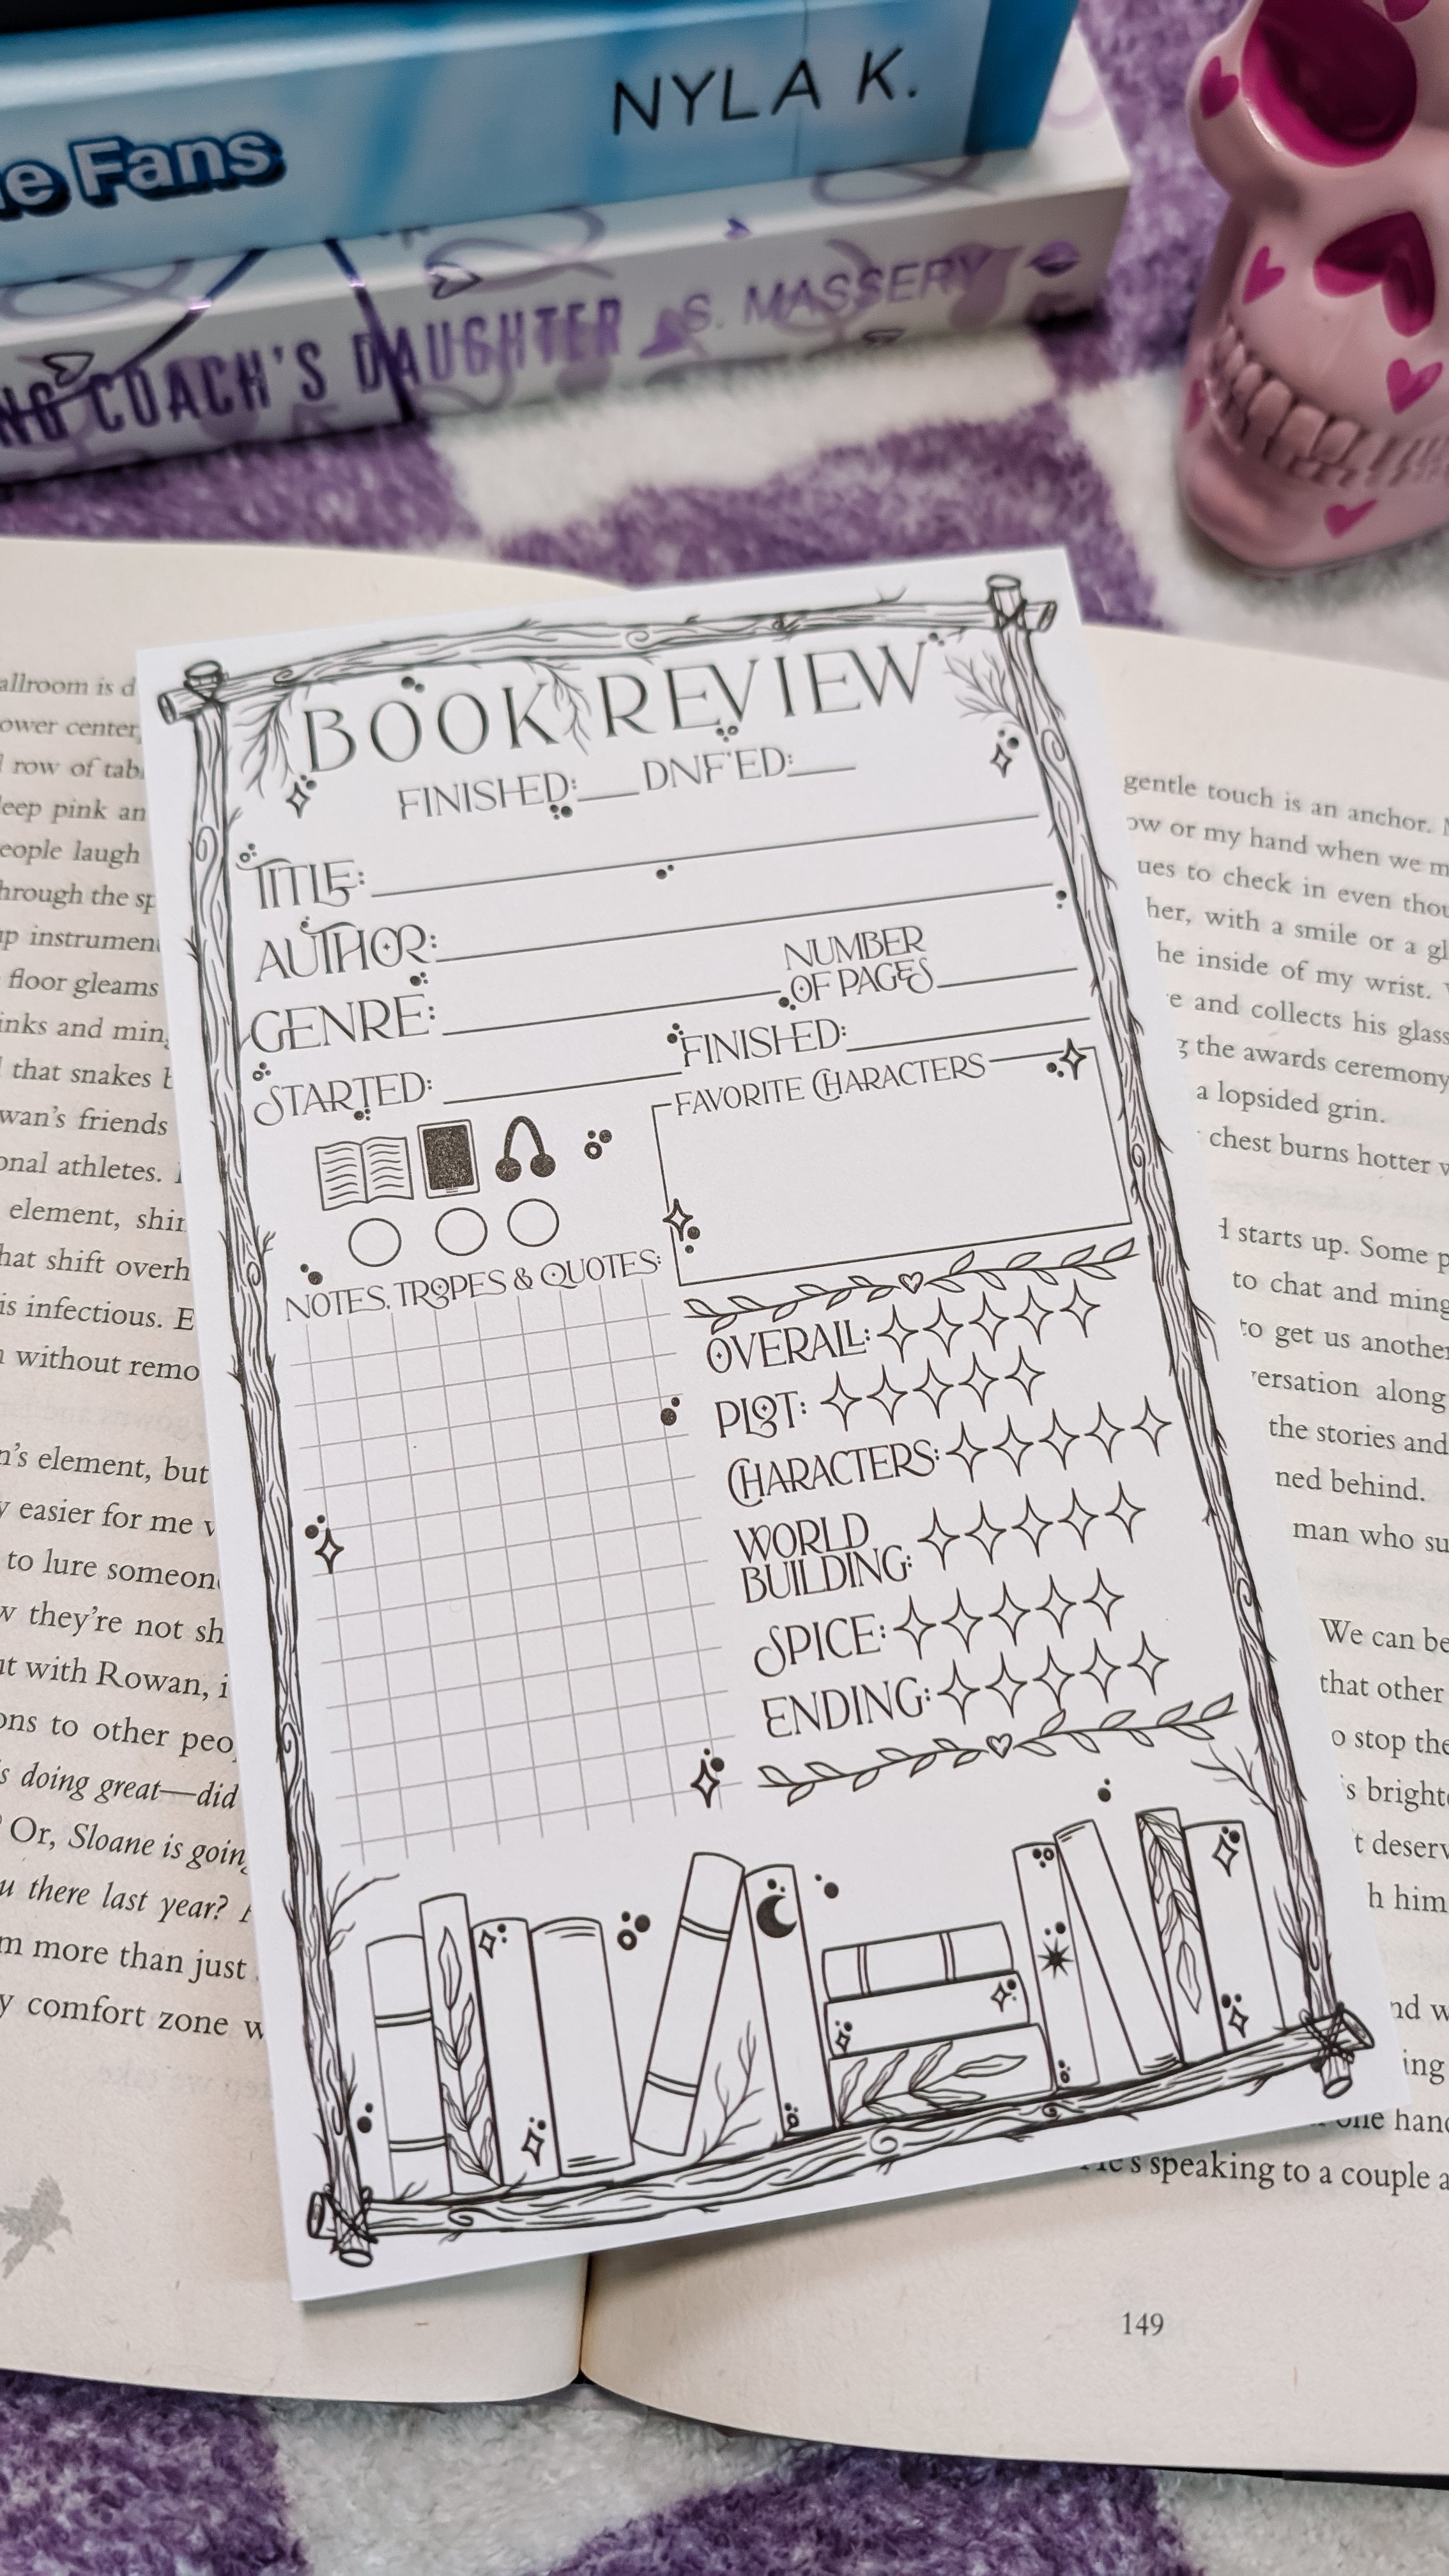 NYLA K.
e Fans
NG COACH'S DAUGHTER S. MASSERY
BOOK REVIEW
FINISHED:___ DNF'ED:___
TITLE:
AUTHOR:
GENRE:
NUMBER
OF PAGES
STARTED:
FINISHED:
FAVORITE CHARACTERS
NOTES, TROPES & QUOTES:
OVERALL:
PLOT:
CHARACTERS:
WORLD
BUILDING:
SPICE:
ENDING:
allroom is d
ower center
row of tab
eep pink an
eople laugh
hrough the sp
up instrumen
floor gleams
inks and min
that snakes
wan's friends
onal athletes.
element, shin
hat shift overh
is infectious. E
without remo
n's element, but
y easier for me
to lure someon
w they're not sh
ut with Rowan, i
ons to other peo
s doing great—did
Or, Sloane is goin
u there last year?
m more than just
y comfort zone w
gentle touch is an anchor.
ow or my hand when we m
ues to check in even thou
her, with a smile or a gl
he inside of my wrist.
e and collects his glass
g the awards ceremony
a lopsided grin.
chest burns hotter
starts up. Some p
to chat and ming
to get us another
ersation along
the stories and
ned behind.
man who su
We can be
that other
o stop the
s bright
t deserv
h him
nd w
ing
one hand
He's speaking to a couple a
149